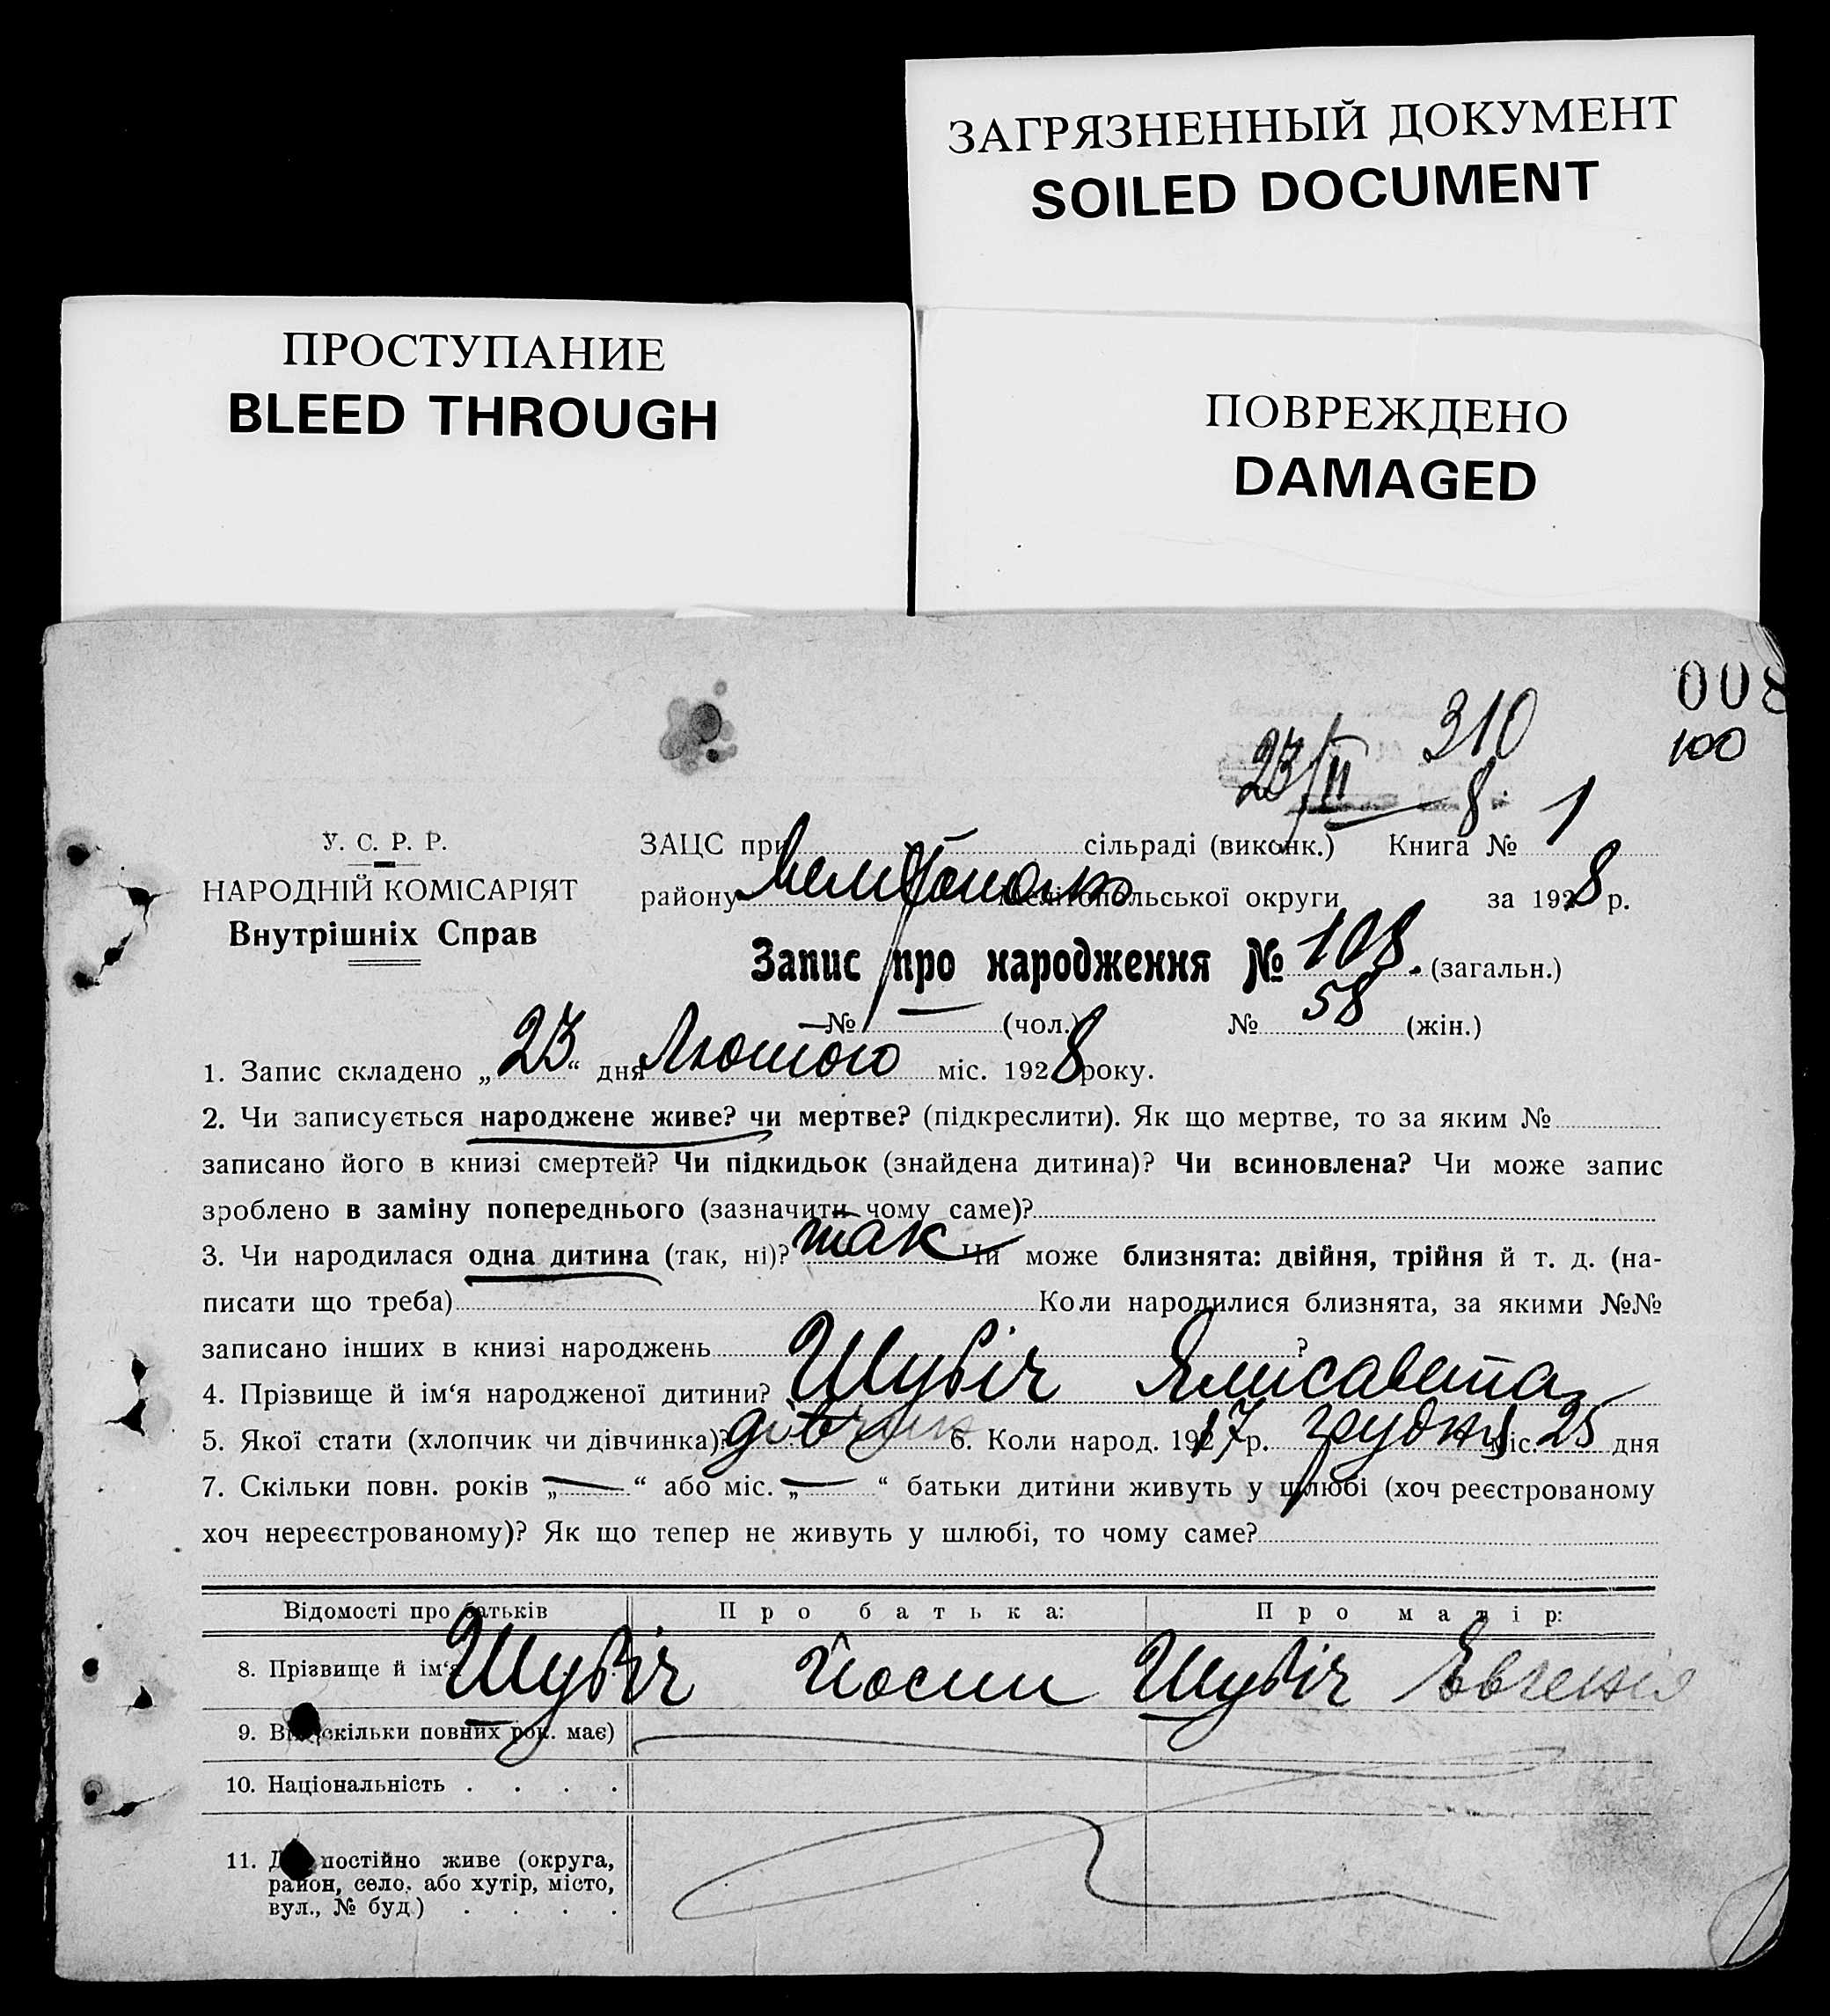 ЗАГРЯЗНЕННЫЙ ДОКУМЕНТ
SOILED DOCUMENT
ПРОСТУПАНИЕ
BLEED THROUGH
ПОВРЕЖДЕНО
DAMAGED
008
100
310
23/II 8.
У. С. Р. Р.
НАРОДНІЙ КОМІСАРІЯТ
Внутрішніх Справ
ЗАЦС при сільраді (виконк.) Книга № 1
району Мелітопольської округи за 1928 р.
Запис про народження № 108. (загальн.)
№ — (чол.) № 58 (жін.)
1. Запис складено „23“ дня Лютого міс. 1928 року.
2. Чи записується народжене живе? чи мертве? (підкреслити). Як що мертве, то за яким №
записано його в книзі смертей? Чи підкидьок (знайдена дитина)? Чи всиновлена? Чи може запис
зроблено в заміну попереднього (зазначити чому саме)?
3. Чи народилася одна дитина (так, ні)? так Чи може близнята: двійня, трійня й т. д. (на-
писати що треба) Коли народилися близнята, за якими №№
записано інших в книзі народжень ?
4. Прізвище й ім‘я народженої дитини? Шубіч Єлисавета
5. Якої стати (хлопчик чи дівчинка)? дівчина 6. Коли народ. 1927 р. грудня міс. 25 дня
7. Скільки повн. років „—“ або міс. „—“ батьки дитини живуть у шлюбі (хоч реєстрованому
хоч нереєстрованому)? Як що тепер не живуть у шлюбі, то чому саме?
Відомості про батьків Про батька: Про матір:
8. Прізвище й ім‘я Шубіч Йосип Шубіч Євгенія
9. Вік (скільки повних рок. має)
10. Національність . . . .
11. Де постійно живе (округа,
район, село, або хутір, місто,
вул., № буд.) . . . .